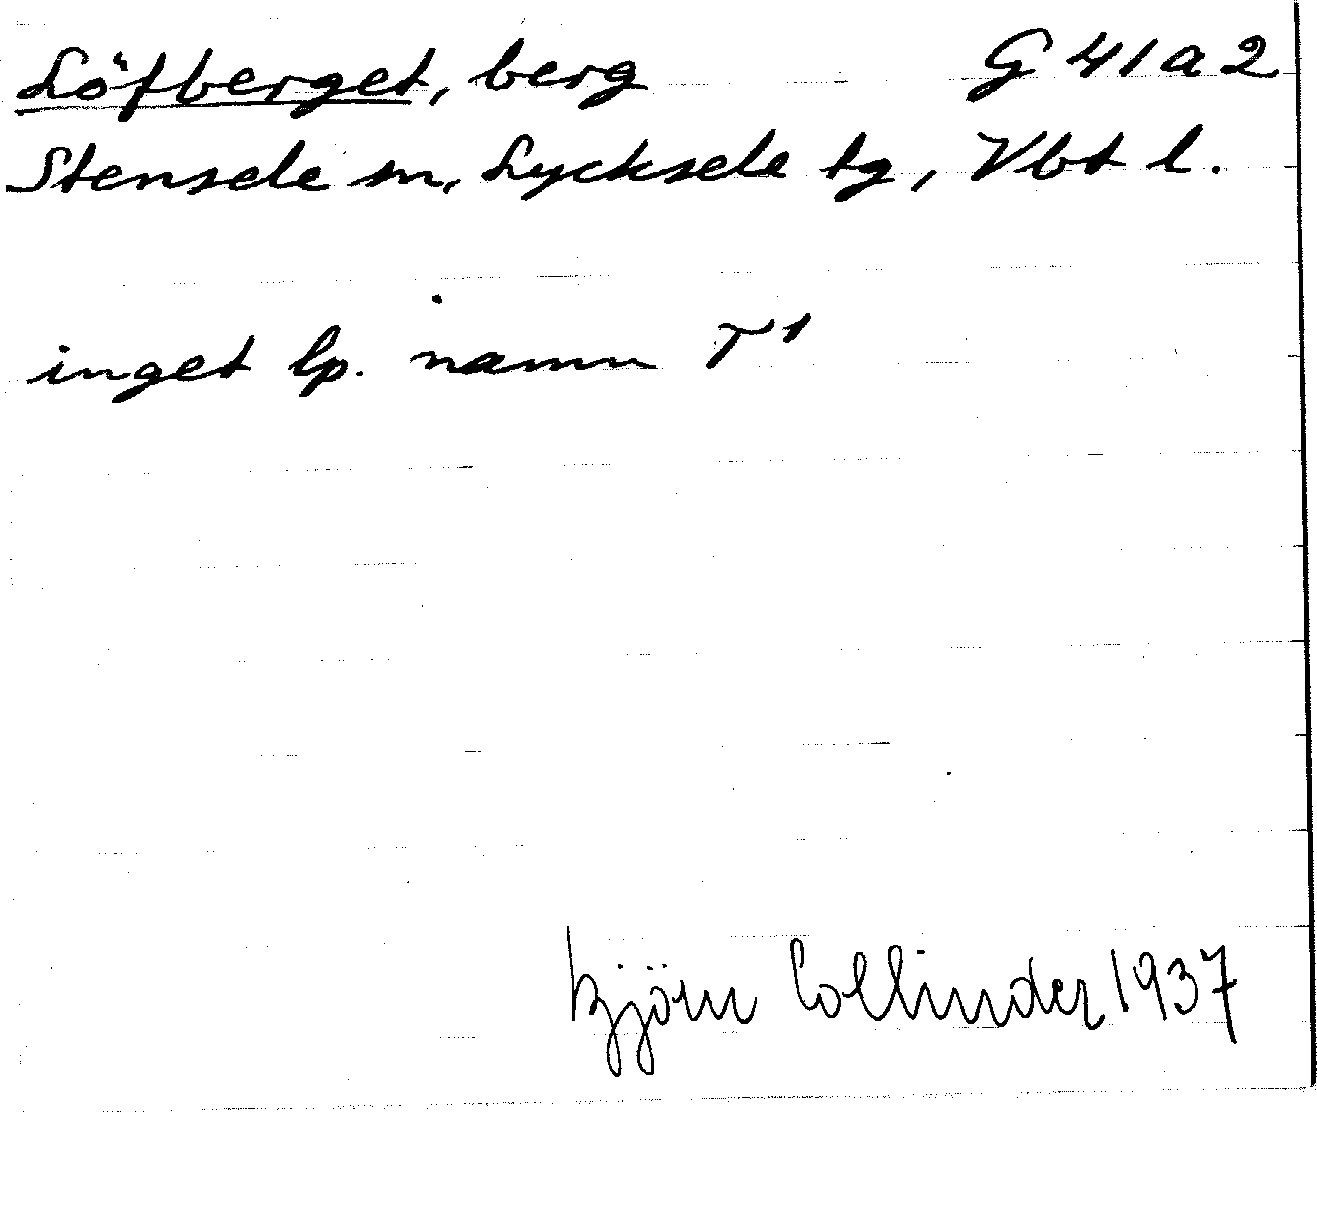 Löfberget, berg G 41 a 2
Stensele sn, Lycksele tg, Vbt l.
inget lp. namn T¹
Björn Collinder 1937